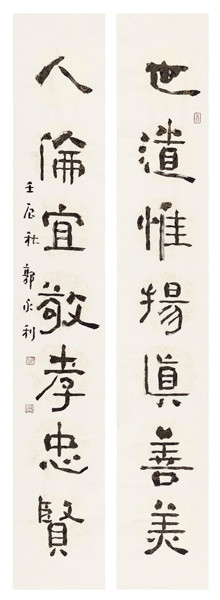 世道惟揚眞善美
人倫宜敬孝忠賢
壬辰秋 郭永利